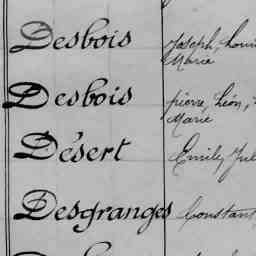 Desbois Joseph, Louis
Marie
Desbois pierre, Léon,
Marie
Désert Emile, Jul
Desgranges Constant,